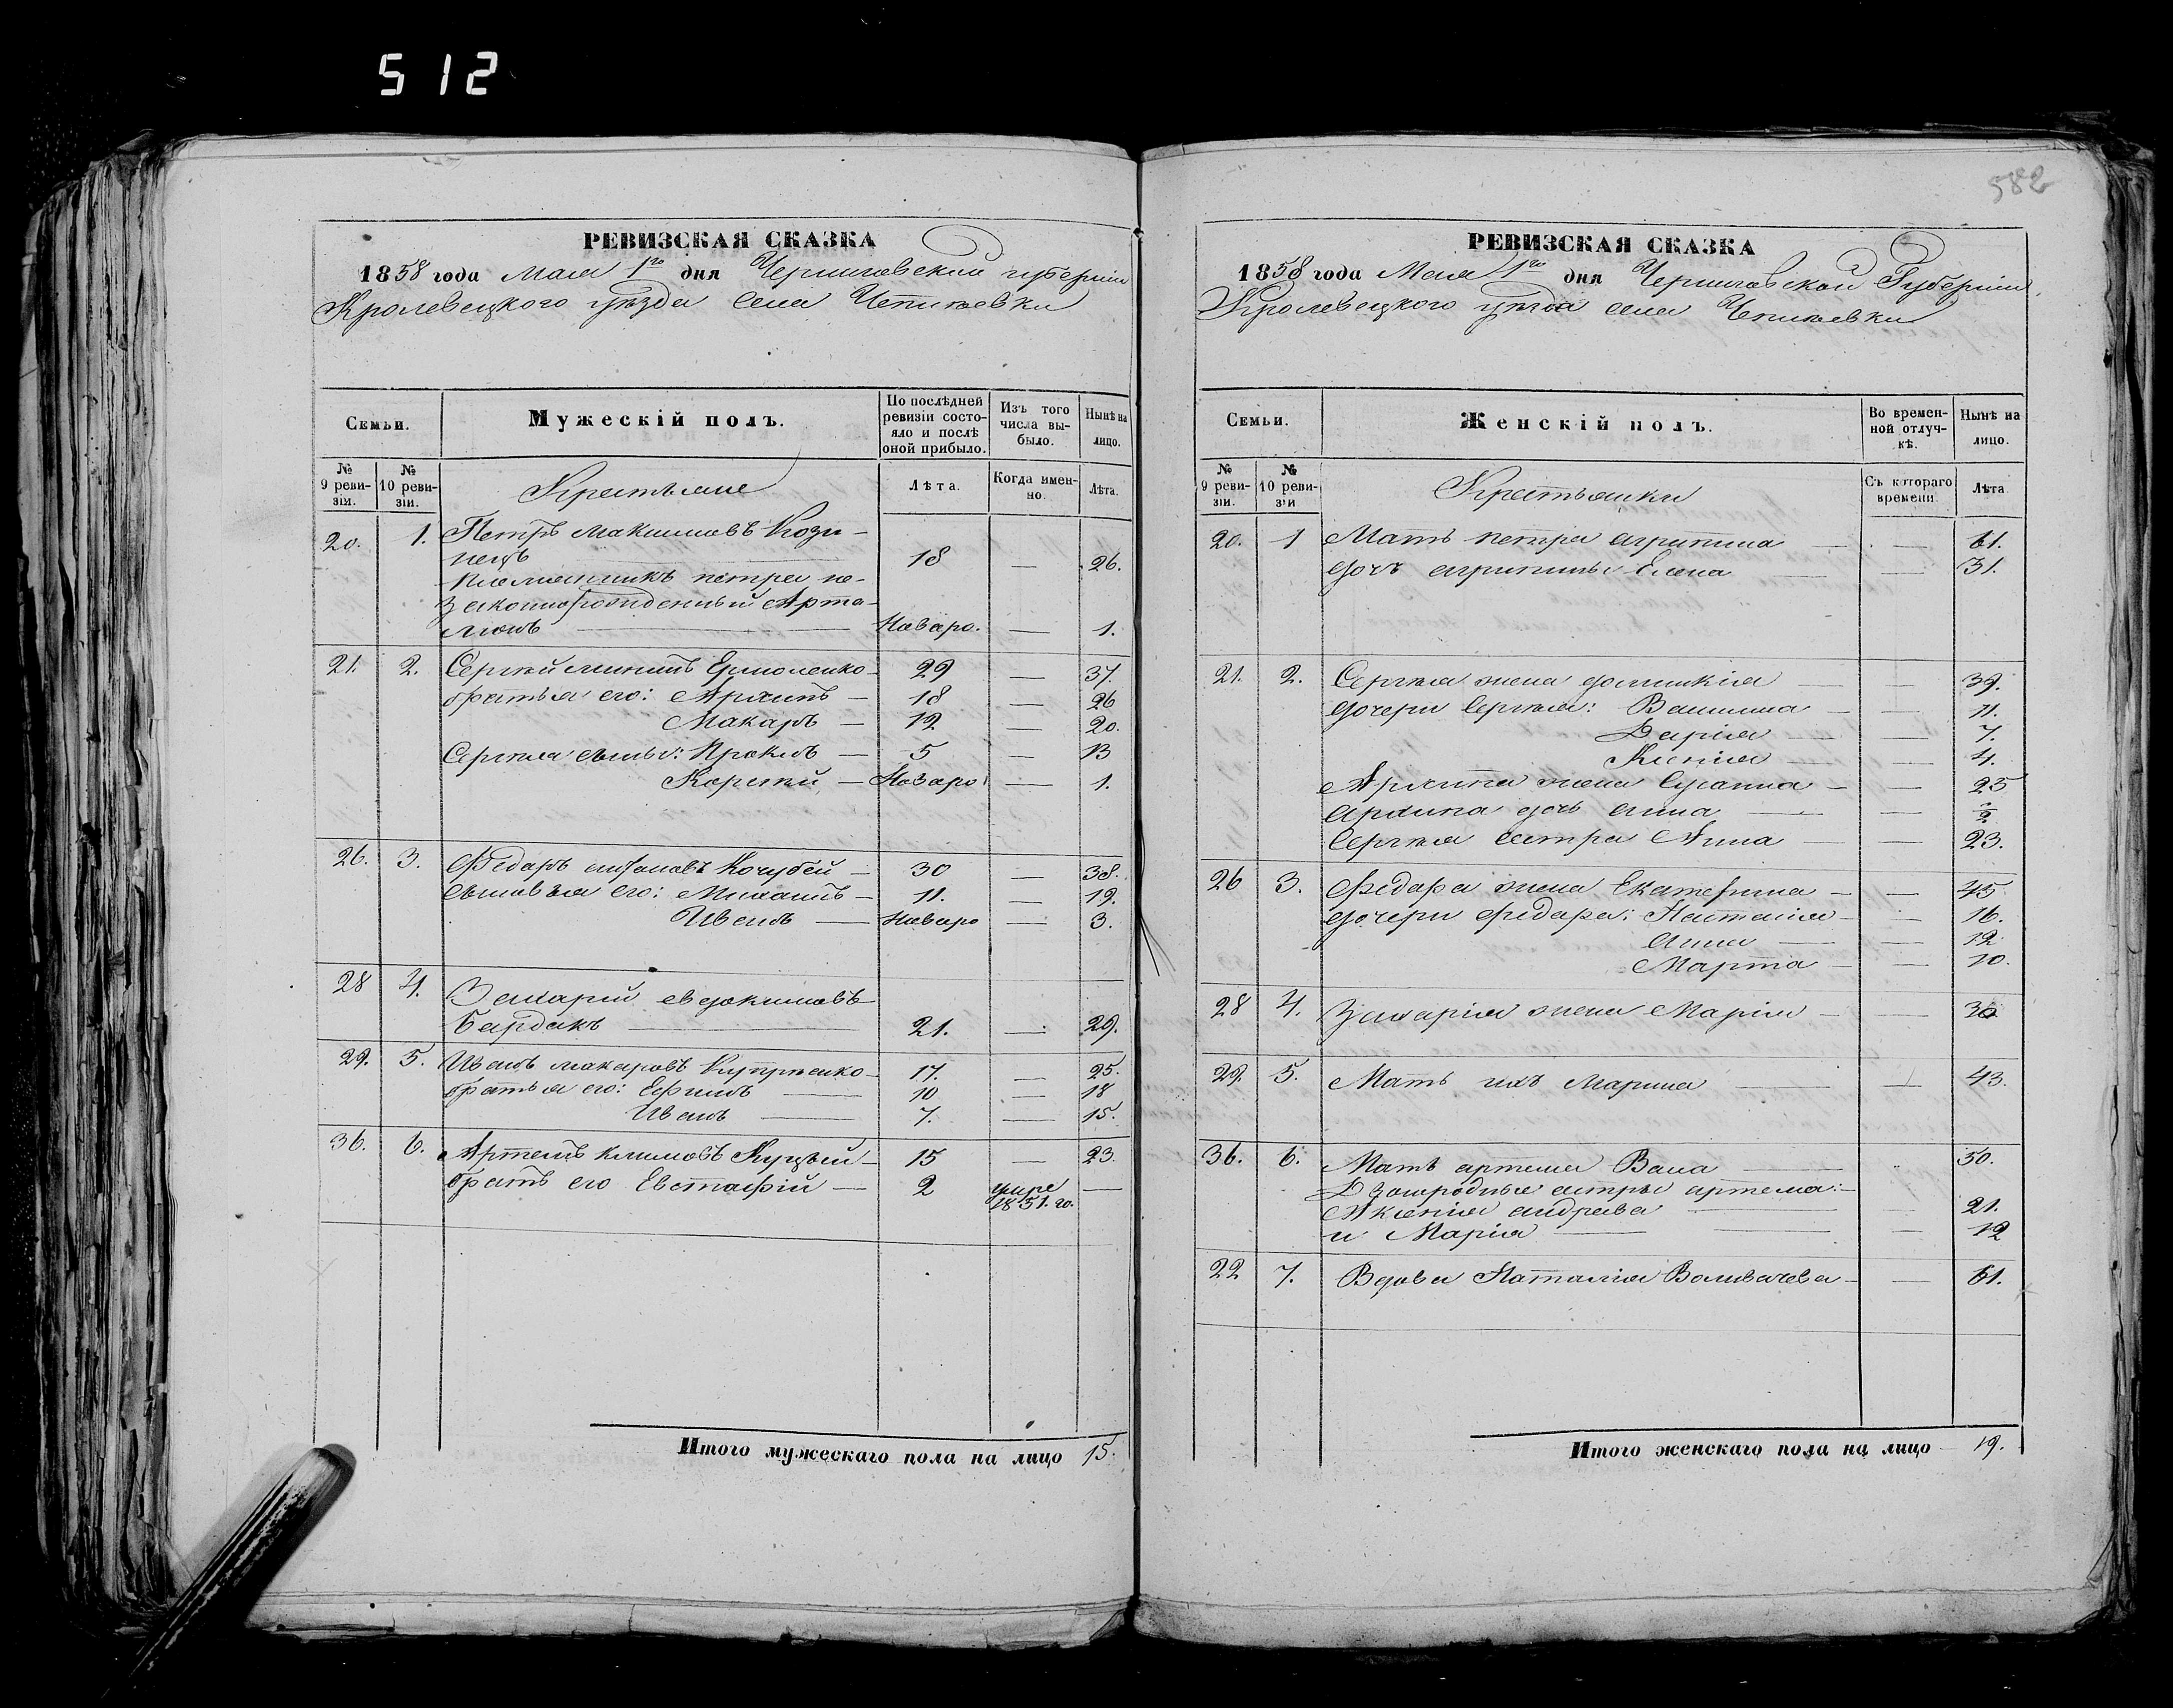 512
582
РЕВИЗСКАЯ СКАЗКА
1858 года Мая 1го дня Черниговской губерніи
Кролевецкого уѣзда села Чепліевки
Семьи.
Мужескій полъ.
По послѣдней ревизіи состояло и послѣ оной прибыло.
Изъ того числа выбыло.
Нынѣ на лицо.
№ 9 ревизіи.
№ 10 ревизіи.
Крестьяне
Лѣта.
Когда именно.
Лѣта.
20. 1. Петръ Максимовъ Кози-
нецъ 18 — 26.
Племянникъ петра не-
законнорожденный Арта-
монъ — Новоро. — 1.
21. 2. Сергѣй Ермоленко 29 — 37.
братья его: Архипъ — 18 — 26
Макаръ — 12 — 20.
Сергѣя сыны: Проклъ — 5 — 13
Корнѣй — Новоро — 1.
26. 3. Федаръ Кочубей — 30 — 38.
сыновья его: Михаилъ — 11. — 19.
Иванъ — Новоро — 3.
28 4. Захарій евдокимовъ
Бардакъ — 21. — 29.
29. 5. Иванъ макаровъ Купрѣенко 17. — 25.
братья его: Ефимъ — 10 — 18
Иванъ — 7. — 15.
36. 6. Артемъ климовъ Куцый — 15 — 23.
братъ его Евстафій — 2 умре —
1851. го.
Итого мужескаго пола на лицо 15.
РЕВИЗСКАЯ СКАЗКА
1858 года Мая 1го дня Черниговской Губерніи
Кролевецкого уѣзда села Чепліевки
Семьи.
Женскій полъ.
Во временной отлучкѣ.
Нынѣ на лицо.
№ 9 ревизіи.
№ 10 ревизіи
Крестьянки
Съ котораго времени.
Лѣта
20. 1 Мать петра агрипина — — 61.
дочь агрипины Елена — — 31.
21. 2. Сергѣя жена — — 39.
дочери Сергѣя: — — 11.
Дарія — — 7.
Ксенія — — 4.
Архипа жена Сусанна — — 25
Архипа дочь анна — — ½
Сергѣя сестра Анна — — 23.
26 3. Федара жена Екатерина — — 45
дочери федара: Наталія — — 16.
анна — — 12
Марта — — 10.
28 4. Захарія жена Марія — — 30
29. 5. Мать ихъ Марина — — 43.
36. 6. Мать артема — 50.
Двоюродные сестры артема: —
Аксенія андреева — 21.
и Марія — — 12
22 7. Вдова Наталія — — 61.
Итого женскаго пола на лицо — 19.